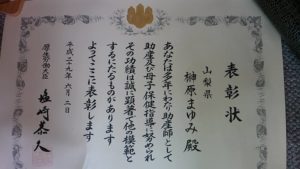 表彰状
山梨県
榊原まゆみ 殿
あなたは多年にわたり助産師として
助産及び母子保健指導に努められ
その功績は誠に顕著で他の模範と
するにたるものがあります
よってここに表彰します
平成二十九年六月二日
厚生労働大臣 塩崎恭久